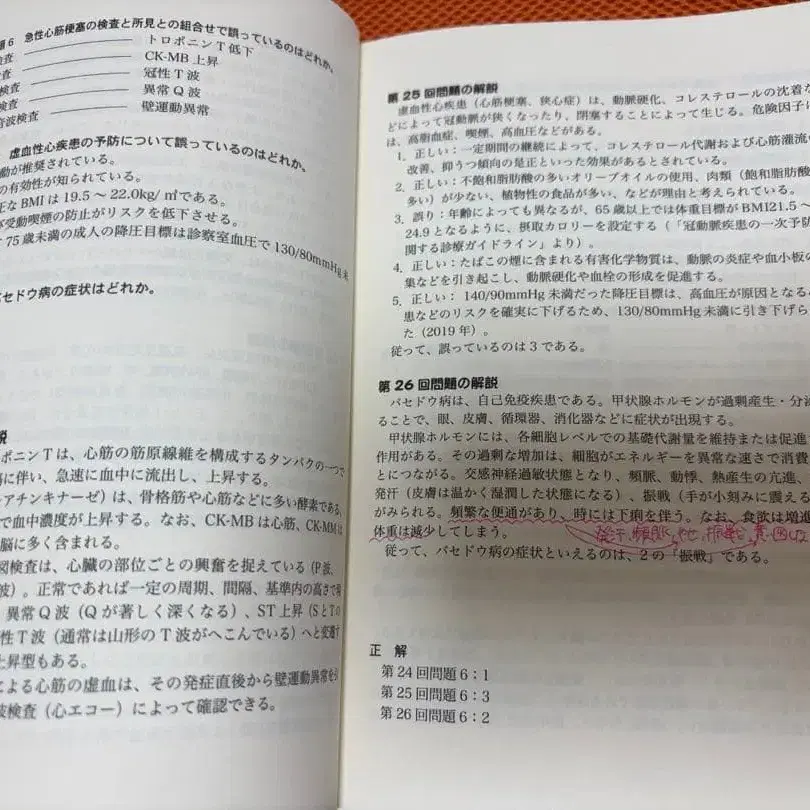 題6 急性心筋梗塞の検査と所見との組合せで誤っているのはどれか。
検査 トロポニンT低下
検査 CK-MB上昇
検査 冠性T波
検査 異常Q波
音波検査 壁運動異常
虚血性心疾患の予防について誤っているのはどれか。
動が推奨されている。
の有効性が知られている。
正なBMIは19.5～22.0kg/㎡である。
び受動喫煙の防止がリスクを低下させる。
75歳未満の成人の降圧目標は診察室血圧で130/80mmHg未
セドウ病の症状はどれか。
説
ポニンTは、心筋の筋原線維を構成するタンパクの一つで
に伴い、急速に血中に流出し、上昇する。
アチンキナーゼ）は、骨格筋や心筋などに多い酵素である。
で血中濃度が上昇する。なお、CK-MBは心筋、CK-MMは
脳に多く含まれる。
図検査は、心臓の部位ごとの興奮を捉えている（P波、
波）。正常であれば一定の周期、間隔、基準内の高さで現
異常Q波（Qが著しく深くなる）、ST上昇（SとTの
性T波（通常は山形のT波がへこんでいる）へと変遷す
上昇型もある。
による心筋の虚血は、その発症直後から壁運動異常を引
波検査（心エコー）によって確認できる。
第25回問題の解説
虚血性心疾患（心筋梗塞、狭心症）は、動脈硬化、コレステロールの沈着な
どによって冠動脈が狭くなったり、閉塞することによって生じる。危険因子に
は、高脂血症、喫煙、高血圧などがある。
1．正しい：一定期間の継続によって、コレステロール代謝および心筋灌流の
改善、抑うつ傾向の是正といった効果があるとされている。
2．正しい：不飽和脂肪酸の多いオリーブオイルの使用、肉類（飽和脂肪酸
多）が少ない、植物性の食品が多い、などが理由と考えられている。
3．誤り：年齢によっても異なるが、65歳以上では体重目標がBMI21.5～
24.9となるように、摂取カロリーを設定する（「冠動脈疾患の一次予防
関する診療ガイドライン」より）。
4．正しい：たばこの煙に含まれる有害化学物質は、動脈の炎症や血小板の
集などを引き起こし、動脈硬化や血栓の形成を促進する。
5．正しい：140/90mmHg未満だった降圧目標は、高血圧が原因となる
患などのリスクを確実に下げるため、130/80mmHg未満に引き下げら
た（2019年）。
従って、誤っているのは3である。
第26回問題の解説
バセドウ病は、自己免疫疾患である。甲状腺ホルモンが過剰産生・分泌
ることで、眼、皮膚、循環器、消化器などに症状が出現する。
甲状腺ホルモンには、各細胞レベルでの基礎代謝量を維持または促進
作用がある。その過剰な増加は、細胞がエネルギーを異常な速さで消費
とにつながる。交感神経過敏状態となり、頻脈、動悸、熱産生の亢進、
発汗（皮膚は温かく湿潤した状態になる）、振戦（手が小刻みに震える
がみられる。頻繁な便通があり、時には下痢を伴う。なお、食欲は増進
体重は減少してしまう。
発汗、頻脈
従って、バセドウ病の症状といえるのは、2の「振戦」である。
正 解
第24回問題6：1
第25回問題6：3
第26回問題6：2